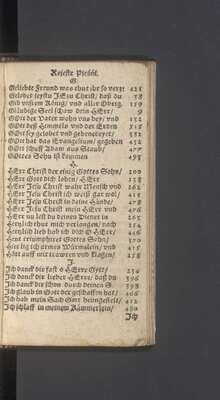 Rejestr Pieśni.
G.
Geliebte Freund was thut ihr so verzagen 421
Gelobet seystu JEsu Christ/ daß du 58
Gib unserm König/ und aller Obrig. 159
Gläubige Seel schaw dein HErr/ 9
GOtt der Vater wohn uns bey/ und 132
GOtt deß Himmels und der Erden 315
GOtt sey gelobet und gebenedeyet/ 382
GOtt hat das Evangelium/ gegeben 452
GOtt schuff Adam aus Staub/ 477
GOttes Sohn ist kommen 498
H.
HErr Christ der einig Gottes Sohn/ 200
HErr Gott dich loben/ HErr 238
HErr JEsu Christ wahr Mensch und 261
HErr JEsu Christ ich weiß gar wol/
HErr JEsu Christ in deine Hände/
HErr JEsu Christ mein HErr und
HErr nu lest du deinen Diener in 265
Hertzlich thut mich verlangen/ nach
Hertzlich lieb hab ich dich O HErr/
Heut triumphiret Gottes Sohn/
Hier lig ich armes Würmelein/ und 415
Hört auff mit trawren und Klagen/
J.
Ich danck dir fast O HErre Gott/ 250
Ich danck dir lieber HErre/ daß du 306
Ich danck dir schon durch deinen S.
Ich glaub in Gott der geschaffen hat/
Ich hab mein Sach Gott heimgestelt/ 412
Ich schlaff in meinem Kämmerlein/ 480
Ich